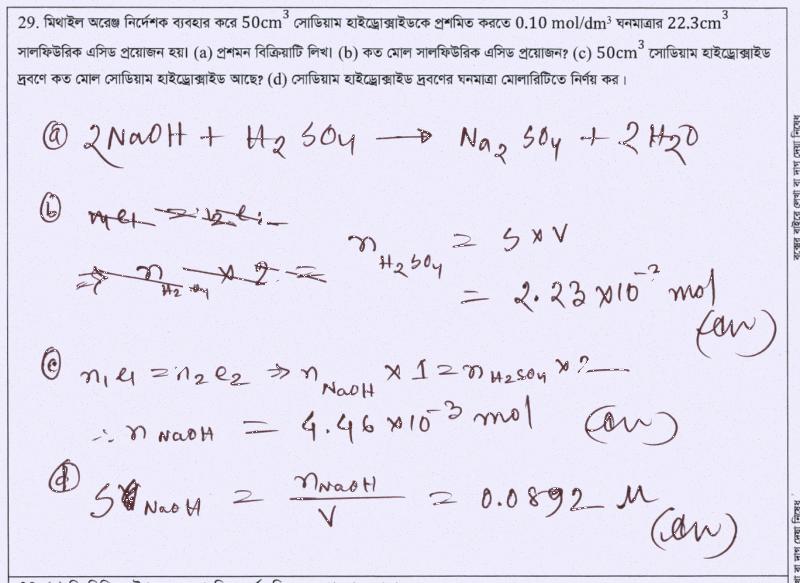 29. মিথাইল অরেঞ্জ নির্দেশক ব্যবহার করে 50cm³ সোডিয়াম হাইড্রোক্সাইডকে প্রশমিত করতে 0.10 mol/dm³ ঘনমাত্রার 22.3cm³
সালফিউরিক এসিড প্রয়োজন হয়। (a) প্রশমন বিক্রিয়াটি লিখ। (b) কত মোল সালফিউরিক এসিড প্রয়োজন? (c) 50cm³ সোডিয়াম হাইড্রোক্সাইড
দ্রবণে কত মোল সোডিয়াম হাইড্রোক্সাইড আছে? (d) সোডিয়াম হাইড্রোক্সাইড দ্রবণের ঘনমাত্রা মোলারিটিতে নির্ণয় কর।
ⓐ 2NaOH + H₂SO₄ → Na₂SO₄ + 2H₂O
ⓑ n H₂SO₄ = S × V
= 2.23 × 10⁻² mol
(Ans)
ⓒ n₁e₁ = n₂e₂ ⇒ n NaOH × 1 = n H₂SO₄ × 2
∴ n NaOH = 4.46 × 10⁻³ mol (Ans)
ⓓ S NaOH = n NaOH / V = 0.0892 M
(Ans)